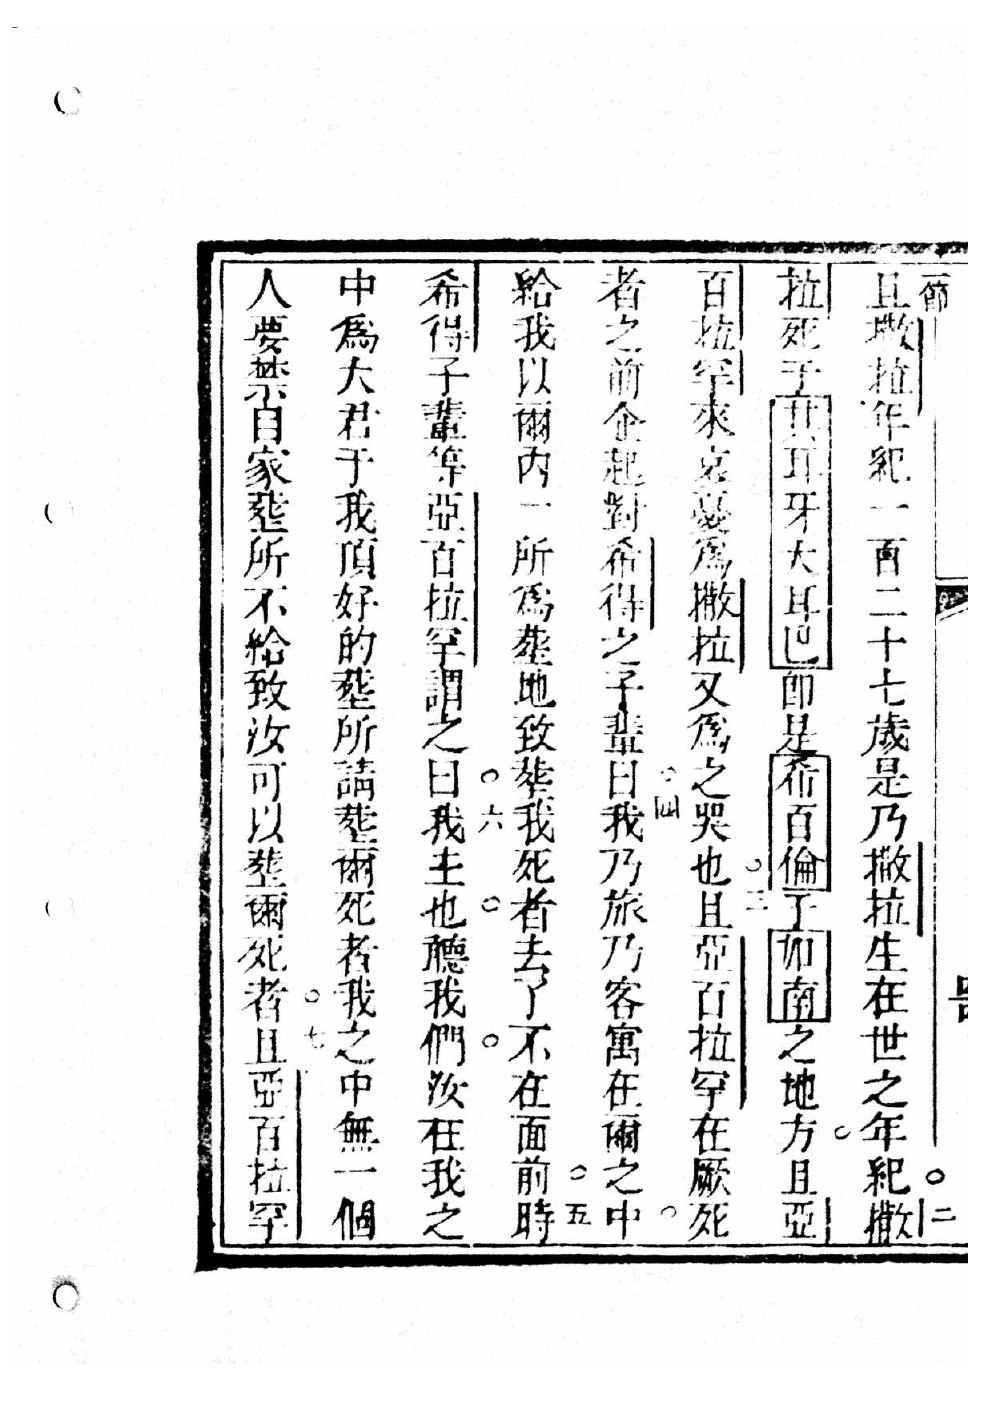 一節
且撒拉年紀一百二十七歲是乃撒拉生在世之年紀。二撒
拉死于其耳牙大耳巴卽是希百倫于加南之地方。且亞
百拉罕來哀憂爲撒拉又爲之哭也。三且亞百拉罕在厥死
者之前企起對希得之子輩曰。四我乃旅乃客寓在爾之中。
給我以爾內一所爲塟地致塟我死者去了不在面前。五時
希得子輩等亞百拉罕謂之曰。六我主也。聽我們。汝在我之
中爲大君于我頂好的塟所請塟爾死者我之中無一個
人要禁自家塟所不給致汝可以塟爾死者。七且亞百拉罕